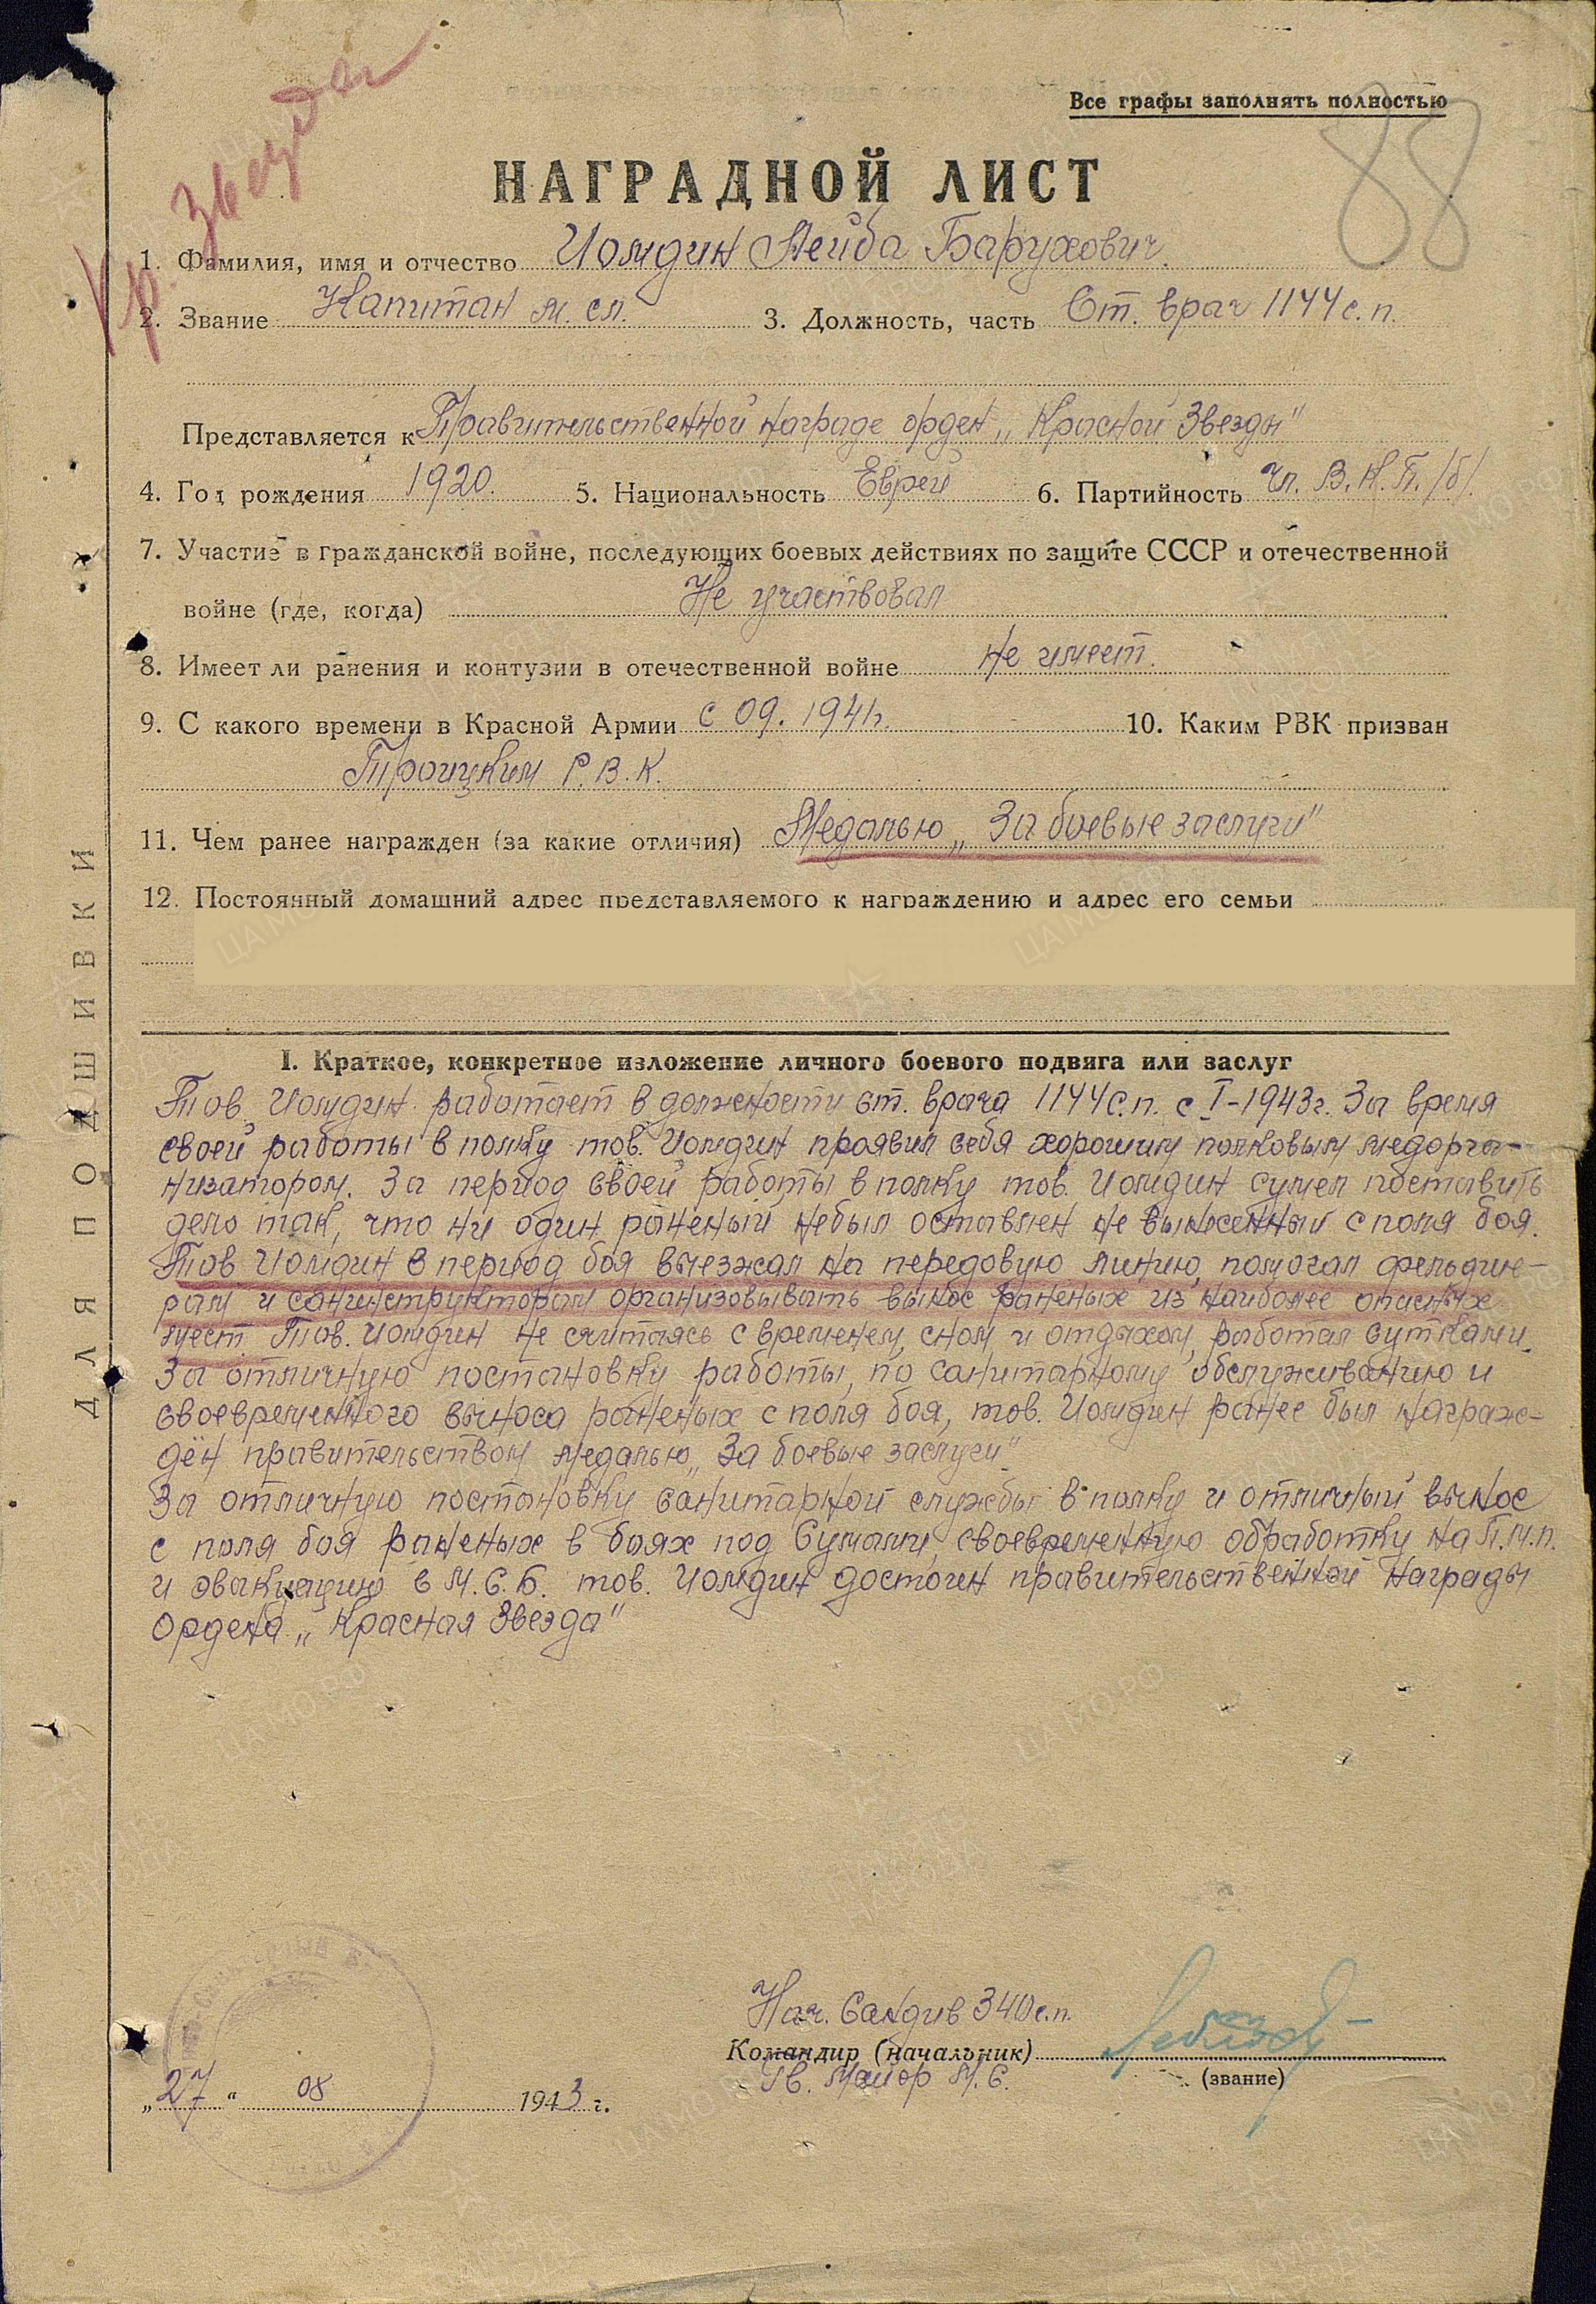 Кр. звезда
Все графы заполнять полностью
88
НАГРАДНОЙ ЛИСТ
1. Фамилия, имя и отчество Иомдин Лейба Барухович.
2. Звание Капитан м. сл. 3. Должность, часть Ст. врач 1144 с. п.
Представляется к Правительственной награде орден „Красной Звезды"
4. Год рождения 1920. 5. Национальность Еврей 6. Партийность Чл. В.К.П./б/.
7. Участие в гражданской войне, последующих боевых действиях по защите СССР и отечественной
войне (где, когда) Не участвовал
8. Имеет ли ранения и контузии в отечественной войне не имеет.
9. С какого времени в Красной Армии с 09. 1941г. 10. Каким РВК призван
Троицким Р.В.К.
11. Чем ранее награжден (за какие отличия) Медалью „За боевые заслуги"
12. Постоянный домашний адрес представляемого к награждению и адрес его семьи
I. Краткое, конкретное изложение личного боевого подвига или заслуг
Тов. Иомдин работает в должности ст. врача 1144 с.п. с I-1943г. За время
своей работы в полку тов. Иомдин проявил себя хорошим полковым медорга-
низатором. За период своей работы в полку тов. Иомдин сумел поставить
дело так, что ни один раненый небыл оставлен не вынесенный с поля боя.
Тов Иомдин в период боя выезжал на передовую линию, помогал фельдше-
рам и санинструкторам организовывать вынос раненых из наиболее опасных
мест. Тов. Иомдин не считаясь с временем, сном и отдыхом, работал сутками.
За отличную постановку работы, по санитарному обслуживанию и
своевременного выноса раненых с поля боя, тов. Иомдин ранее был награж-
дён правительством медалью „За боевые заслуги".
За отличную постановку санитарной службы в полку и отличный вынос
с поля боя раненых в боях под Сумами, своевременную обработку на П.м.п.
и эвакуацию в М.С.Б. тов. Иомдин достоин правительственной награды
Ордена „Красная Звезда"
Нач. Сандив 340 с.п.
Командир (начальник)
Гв. Майор М.С.
(звание)
„27" 08 1943 г.
ДЛЯ ПОДШИВКИ